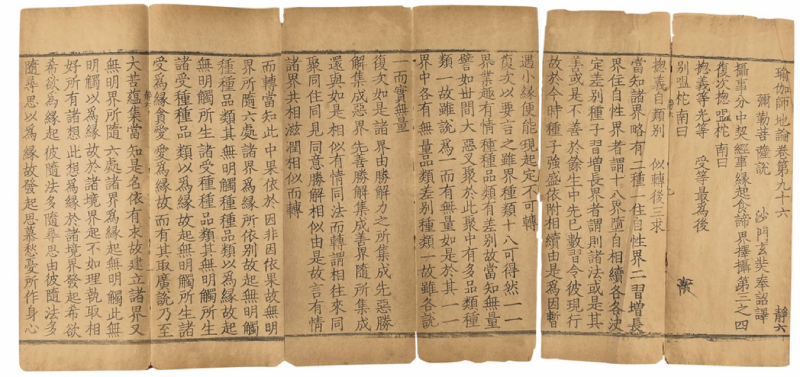 瑜伽師地論卷第九十六
靜六
彌勒菩薩說 沙門玄奘奉詔譯
攝事分中契經事緣起食諦界擇攝第三之四
復次揔嗢柁南曰
揔義等光等 受等最為後
別嗢柁南曰
揔義自類別 似轉後三求
當知諸界略有二種一住自性界二習增長
界住自性界者謂十八界墮自相續各各決
定差別種子習增長界者謂則諸法或是其
善或是不善於餘生中先已數習令彼現行
故於今時種子強盛依附相續由是為因暫
遇小緣便能現起定不可轉
復次以要言之雖界種類十八可得然一一
界業趣有情種種品類有差別故當知無量
譬如世間大惡叉聚於此聚中有多品類種
類一故雖說為一而有無量如是於其一一
界中各有無量品類差別種類一故雖各說
一而實無量
復次如是諸界由勝解力之所集成先惡勝
解集成惡界先善勝解集成善界隨所集成
還與如是相似有情同法而轉謂相往來同
聚同住同見同意勝解相似由是故言有情
諸界共相滋潤相似而轉
而轉當知此中果依於因非因依果故無明
界所隨六處諸界為緣所依別故起無明觸
種種品類其無明觸種種品類以為緣故起
無明觸所生諸受種種品類其無明觸所生
諸受種種品類以為緣故起無明觸所生諸
愛為緣貪愛愛為緣故而有其取廣說乃至
大苦蘊集當知是名依有求故建立諸界又
無明界所隨六處諸界為緣起無明觸此無
明觸以為緣故於諸境界起不如理執取相
好所有諸想此想為緣於諸境界發起希欲
希欲為緣起彼隨法多隨尋思由彼隨法多
隨尋思以為緣故發起思慕愁憂所作身心